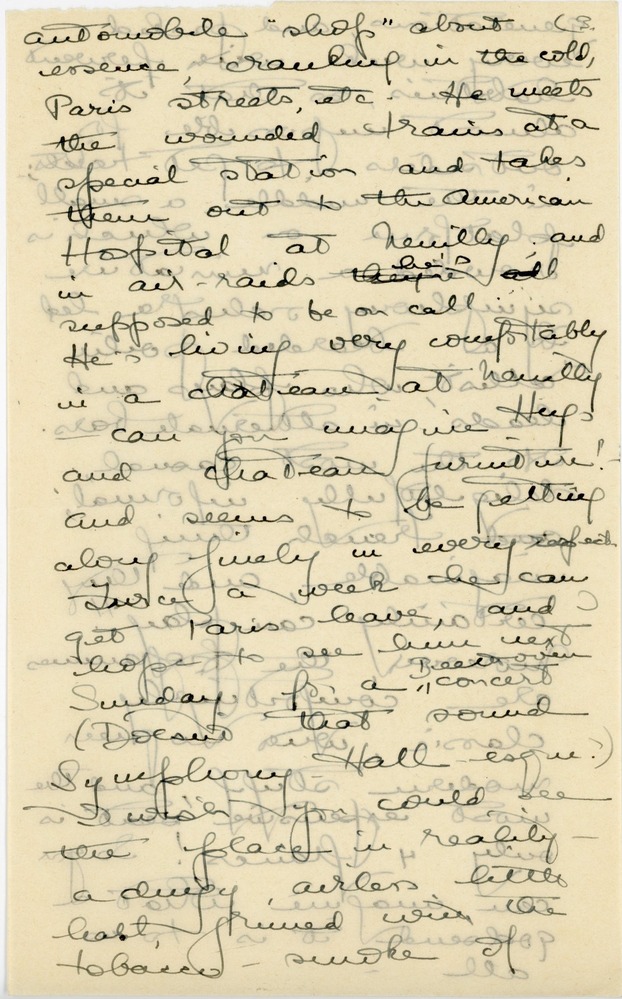 (3.
automobile "shop" about
essence, cranking in the cold,
Paris streets, etc. He meets
the wounded trains at a
special station and takes
them out to the American
Hospital at Neuilly; and
in air-raids they're he's all
supposed to be on call.
He's living very comfortably
in a chateau at Neuilly
- can you imagine Hugs
and chateau furniture! -
and seems to be getting
along finely in every respect.
Twice a week he can
get Paris leave, and I
hope to see him next
Sunday for a Beethoven "concert
(Doesn't that sound
Symphony-Hall-esque?)
I wish you could see
the place in reality -
a dingy, airless little
, grimed with the
tobacco-smoke of